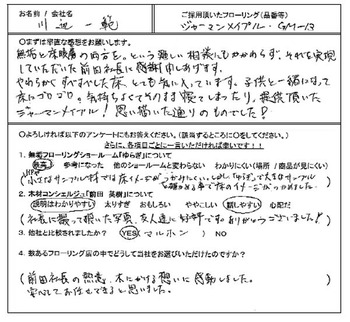 お名前／会社名
川辺 一範
ご採用頂いたフローリング（品番等）
ジャーマンメイプル・GM-13
○まずは率直な感想をお願いします。
無垢と床暖房の両方を、という難しい相談にもかかわらず、それを実現
していただいた前田社長に感謝申しあげます。
やわらかく すべすべした床、とても気に入っています。子供と一緒になって
床にゴロゴロ。気持ちよくてそのまま寝てしまったり。提供頂いた
ジャーマンメイプル！思い描いた通りのものでした！
○よろしければ以下のアンケートにもお答えください。（該当するところに○をしてください。）
さらに、各項目ごとに一言いただければ幸いです！！
1. 無垢フローリングショールーム「ゆらぎ」について
最高！ 参考になった 他のショールームと変わらない わかりにくい（場所 / 商品が見にくい）
小さなサンプル材では床のイメージがつかみにくい。しかし「ゆらぎ」で大きなサンプル
2. 木材コンシェルジュ「前田 英樹」について
説明はわかりやすい 太りすぎ おもしろい ややこしい 話しやすい 心配だ
社長に撮って頂いた写真、友人達に好評です。ありがとうございました！
3. 他社と比較されましたか？ （YES マルホン ） NO
4. 数あるフローリング店の中でどうして当社をお選びいただけたのですか？
前田社長の熱意、木にかける想いに感動しました。
安心してお任せできると思いました。